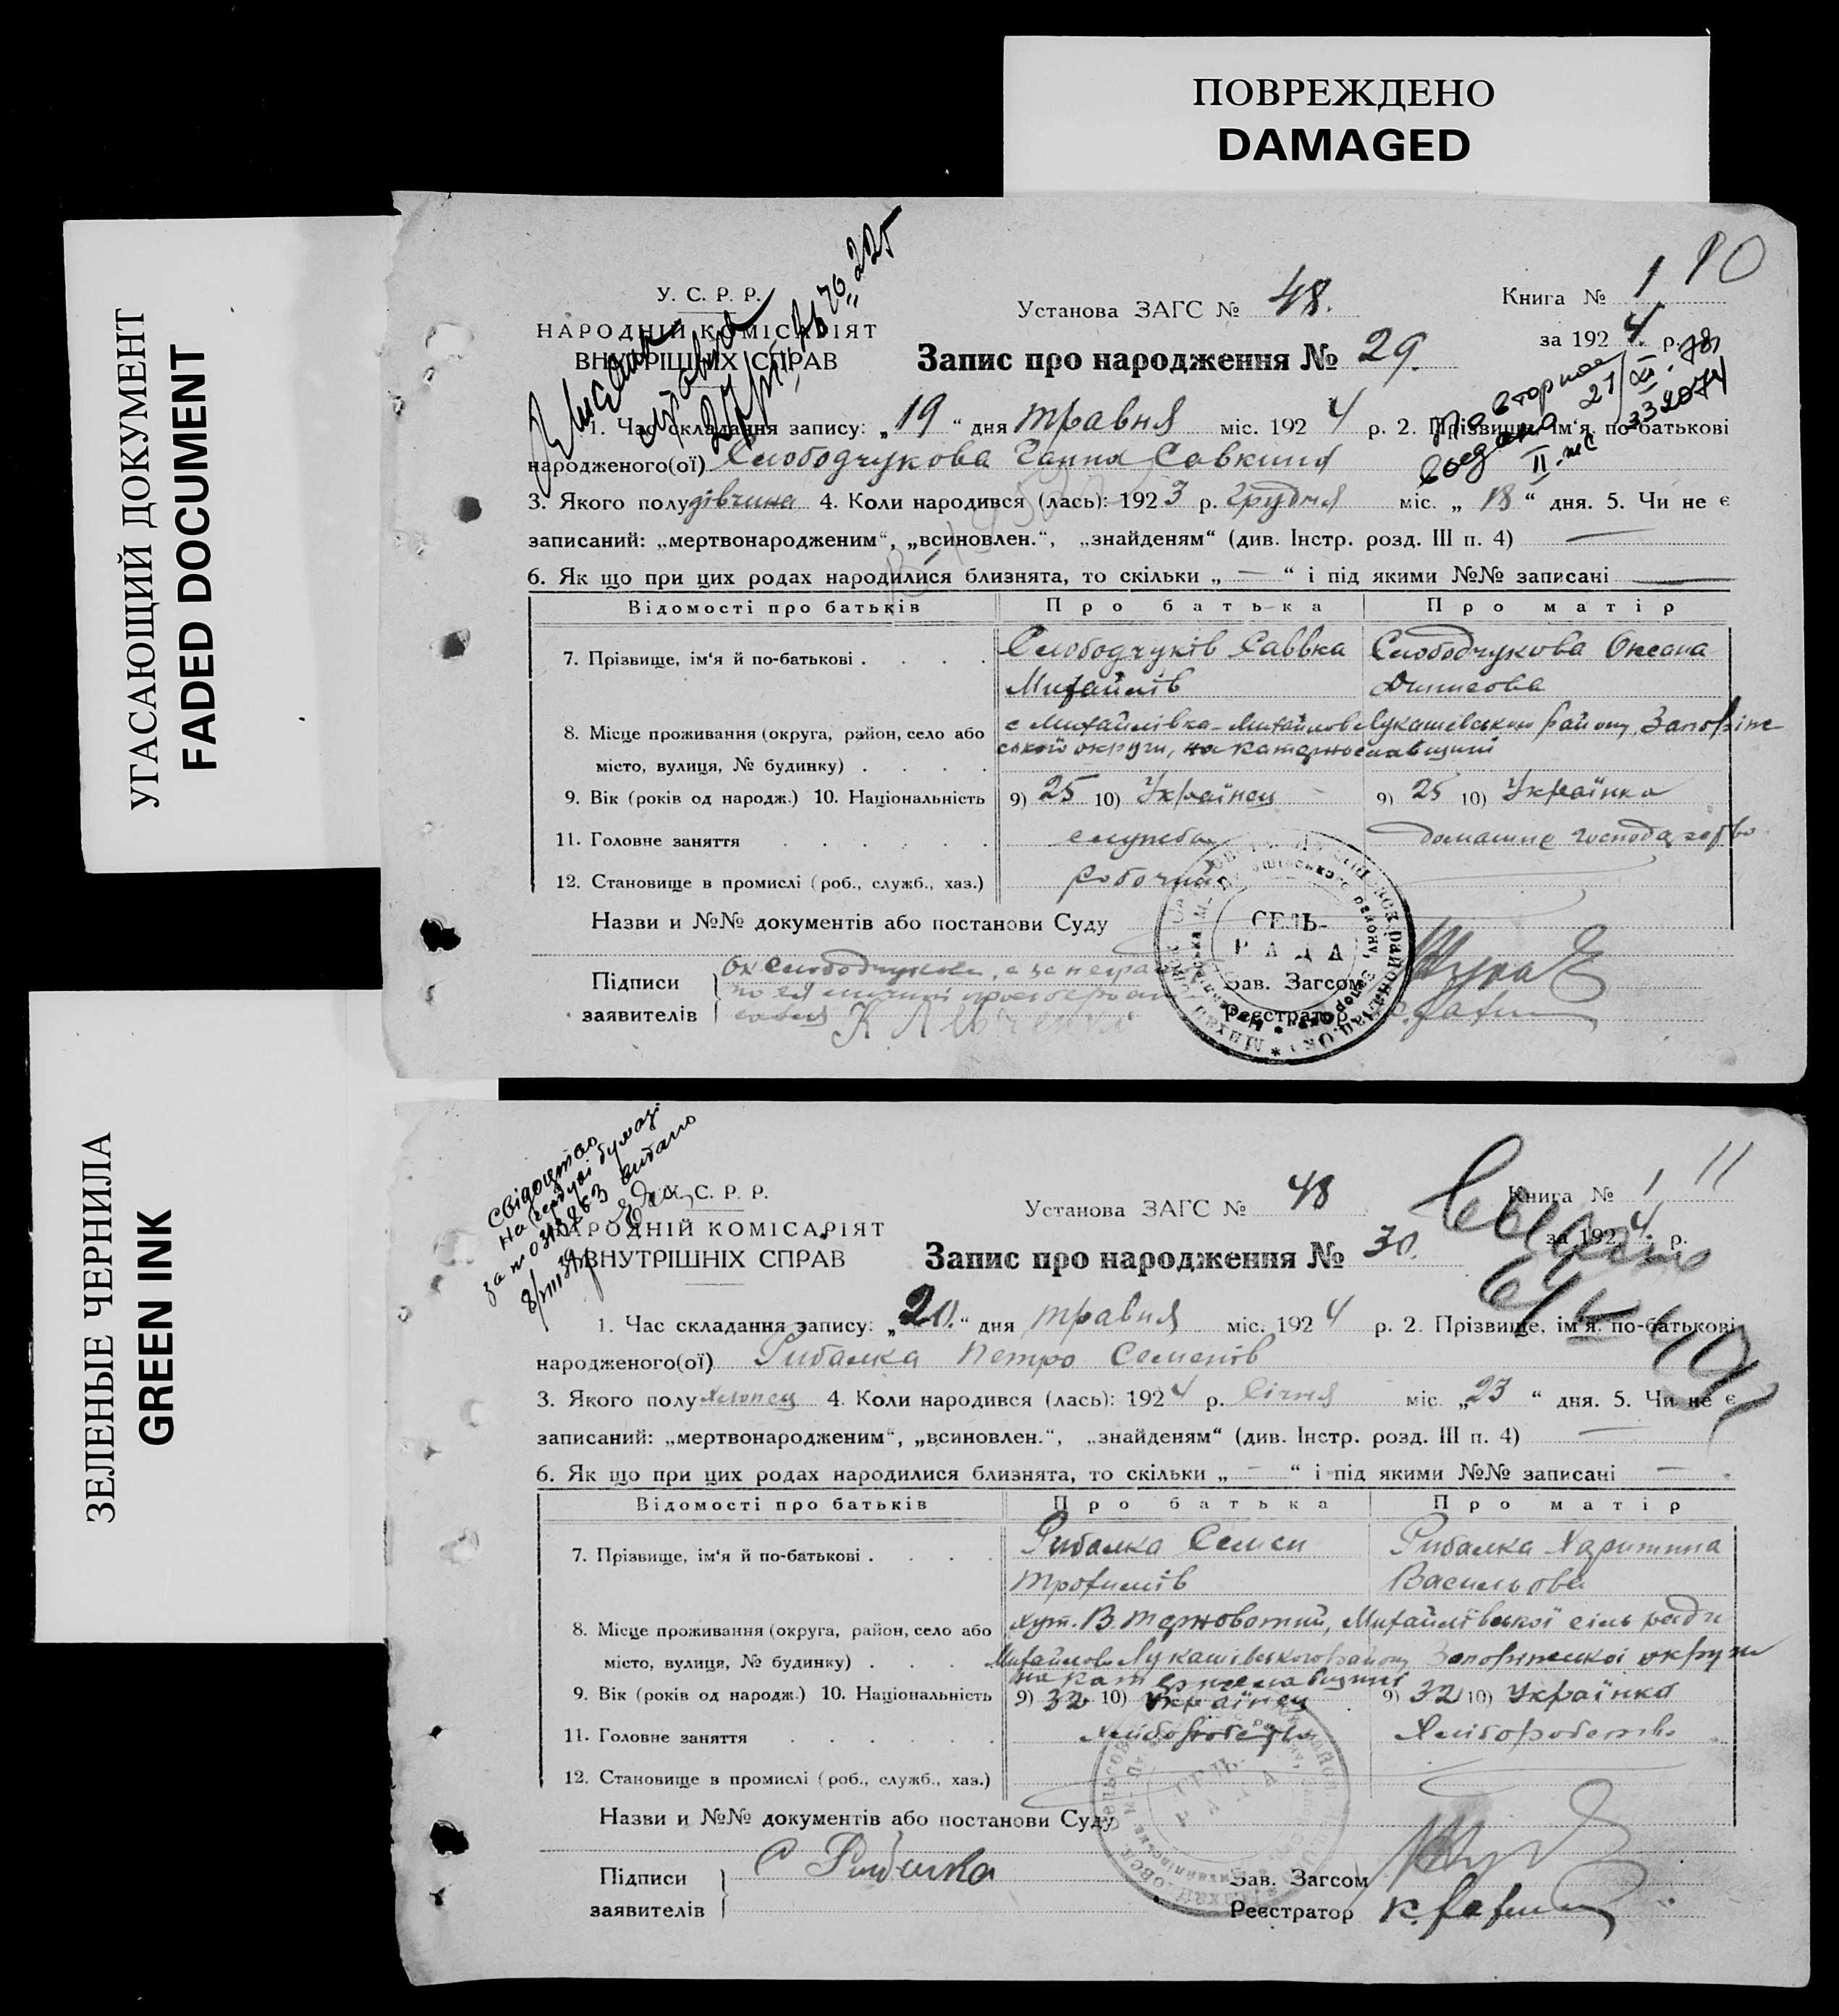 ПОВРЕЖДЕНО
DAMAGED
УГАСАЮЩИЙ ДОКУМЕНТ
FADED DOCUMENT
ЗЕЛЕНЫЕ ЧЕРНИЛА
GREEN INK
У. С. Р. Р.
НАРОДНІЙ КОМІСАРІЯТ
ВНУТРІШНІХ СПРАВ
Установа ЗАГС № 48.
Книга № 1 10
за 1924 р.
Запис про народження № 29.
повторное 21/XI-78
II-ЖС 332074
1. Час складання запису: „19“ дня травня міс. 1924 р. 2. Прізвище, ім‘я, по-батькові
народженого(ої) Слободчукова Ганна Савкина
3. Якого полу дівчина 4. Коли народився (лась): 1923 р. Грудня міс. „18“ дня. 5. Чи не є
записаний: „мертвонародженим“, „всиновлен.“, „знайденям“ (див. Інстр. розд. III п. 4) —
6. Як що при цих родах народилися близнята, то скільки „—“ і під якими №№ записані —
Відомості про батьків Про батька Про матір
7. Прізвище, ім‘я й по-батькові . . . . Слободчуків Саввка Слободчукова Оксана
Михайлів
8. Місце проживання (округа, район, село або с Михайлівка-Михайлово Лукашівського району, Запоріж
місто, вулиця, № будинку) . . . . ської округи, на Катеринославщині
9. Вік (років од народж.) 10. Національність 9) 25 10) Українец 9) 25 10) Українка
11. Головне заняття . . . . . . служба домашне господарство
12. Становище в промислі (роб., служб., хаз.) робочий
Назви и №№ документів або постанови Суду
Підписи
заявителів
СЕЛЬ-
РАДА
Зав. Загсом
Реєстратор
Свідоцтво
видано
У. С. Р. Р.
НАРОДНІЙ КОМІСАРІЯТ
ВНУТРІШНІХ СПРАВ
Установа ЗАГС № 48
Книга № 1 11
за 1924 р.
Запис про народження № 30.
1. Час складання запису: „20.“ дня травня міс. 1924 р. 2. Прізвище, ім‘я, по-батькові
народженого(ої) Рибалка Петро Семенів
3. Якого полу хлопец 4. Коли народився (лась): 1924 р. Січня міс. „23“ дня. 5. Чи не є
записаний: „мертвонародженим“, „всиновлен.“, „знайденям“ (див. Інстр. розд. III п. 4) —
6. Як що при цих родах народилися близнята, то скільки „—“ і під якими №№ записані —
Відомості про батьків Про батька Про матір
7. Прізвище, ім‘я й по-батькові . . . . Рибалка Семен Рибалка Харитина
Трофимів Васильова
8. Місце проживання (округа, район, село або хут. В. Терноватий, Михайлівської сіль ради
місто, вулиця, № будинку) . . . . Михайлово Лукашівського району Запоріжської округи
на Катеринославщині
9. Вік (років од народж.) 10. Національність 9) 32 10) Українец 9) 32 10) Українка
11. Головне заняття . . . . . . хлиборобство Хлиборобство
12. Становище в промислі (роб., служб., хаз.)
Назви и №№ документів або постанови Суду
Підписи С Рибалка
заявителів
СЕЛЬ-
РАДА
Зав. Загсом
Реєстратор